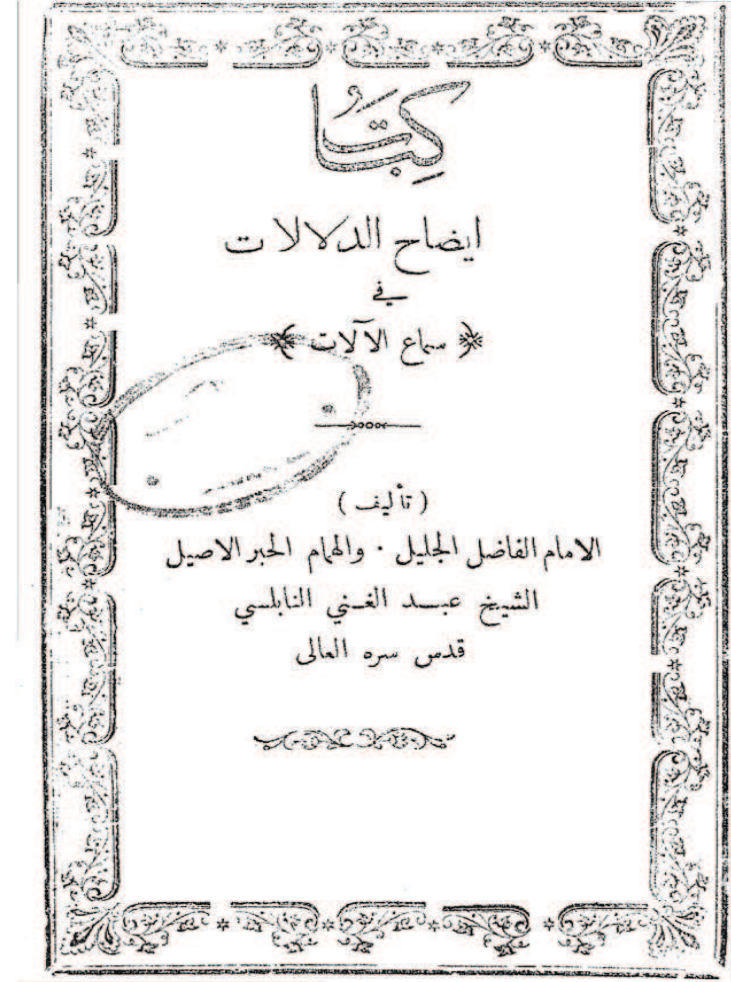 كتاب
ايضاح الدلالات
في
﴿ سماع الآلات ﴾
( تأليف )
الامام الفاضل الجليل . والهمام الحبر الاصيل
الشيخ عبد الغني النابلسي
قدس سره العالى